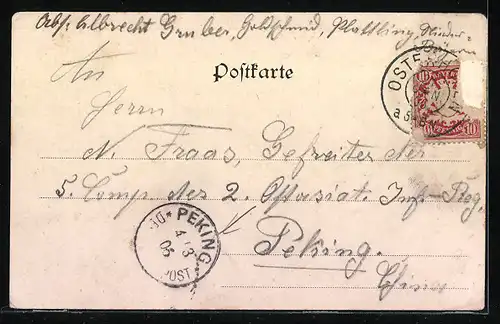 Abs: Albrecht Gruber, Goldschmid, Plattling, Nieder-
Bayern
Postkarte
An
Herrn
N. Fraas, Gefreiter der
5. Comp. des 2. Ostasiat. Inf. Reg.
Peking.
China
OSTER
BAYERN
10
10
PEKING
4/3
06
POST